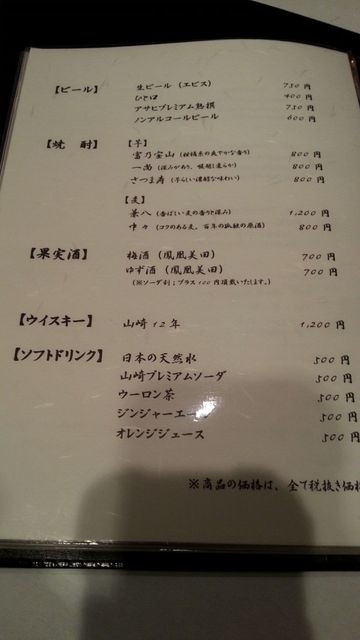 【ビール】 生ビール (エビス) 750 円
ひとは 400 円
アサヒプレミアム熟撰 750 円
ノンアルコールビール 600 円
【焼 酎】 【芋】
富乃宝山 (柑橘系の爽やかな香り) 800 円
一尚 (深みがあり、 800 円
さつま寿 (芋らしい濃醇な味わい) 800 円
【麦】
兼八 (香ばしい麦の香りと深み) 1,200 円
中々 (コクのある麦。百年の孤独の原酒) 800 円
【果実酒】 梅酒 (鳳凰美田) 700 円
ゆず酒 (鳳凰美田) 700 円
(※ソーダ割;プラス100円頂戴いたします。)
【ウイスキー】 山崎 12 年 1,200 円
【ソフトドリンク】 日本の天然水 500 円
山崎プレミアムソーダ 500 円
ウーロン茶 500 円
ジンジャーエール 500 円
オレンジジュース 500 円
※商品の価格は、全て税抜き価格